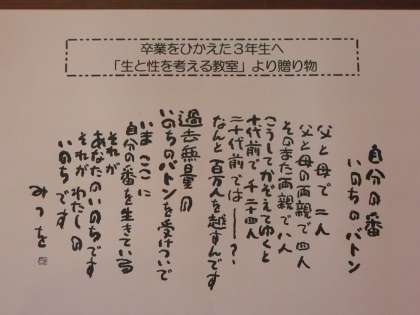 卒業をひかえた3年生へ
「生と性を考える教室」より贈り物
自分の番
いのちのバトン
父と母で二人
父と母の両親で四人
そのまた両親で八人
こうしてかぞえてゆくと
十代前で千二十四人
二十代前では――?
なんと百万人を越すんです
過去無量の
いのちのバトンを受けついで
いまここに
自分の番を生きている
それが
あなたのいのちです
それがわたしの
いのちです
みつを